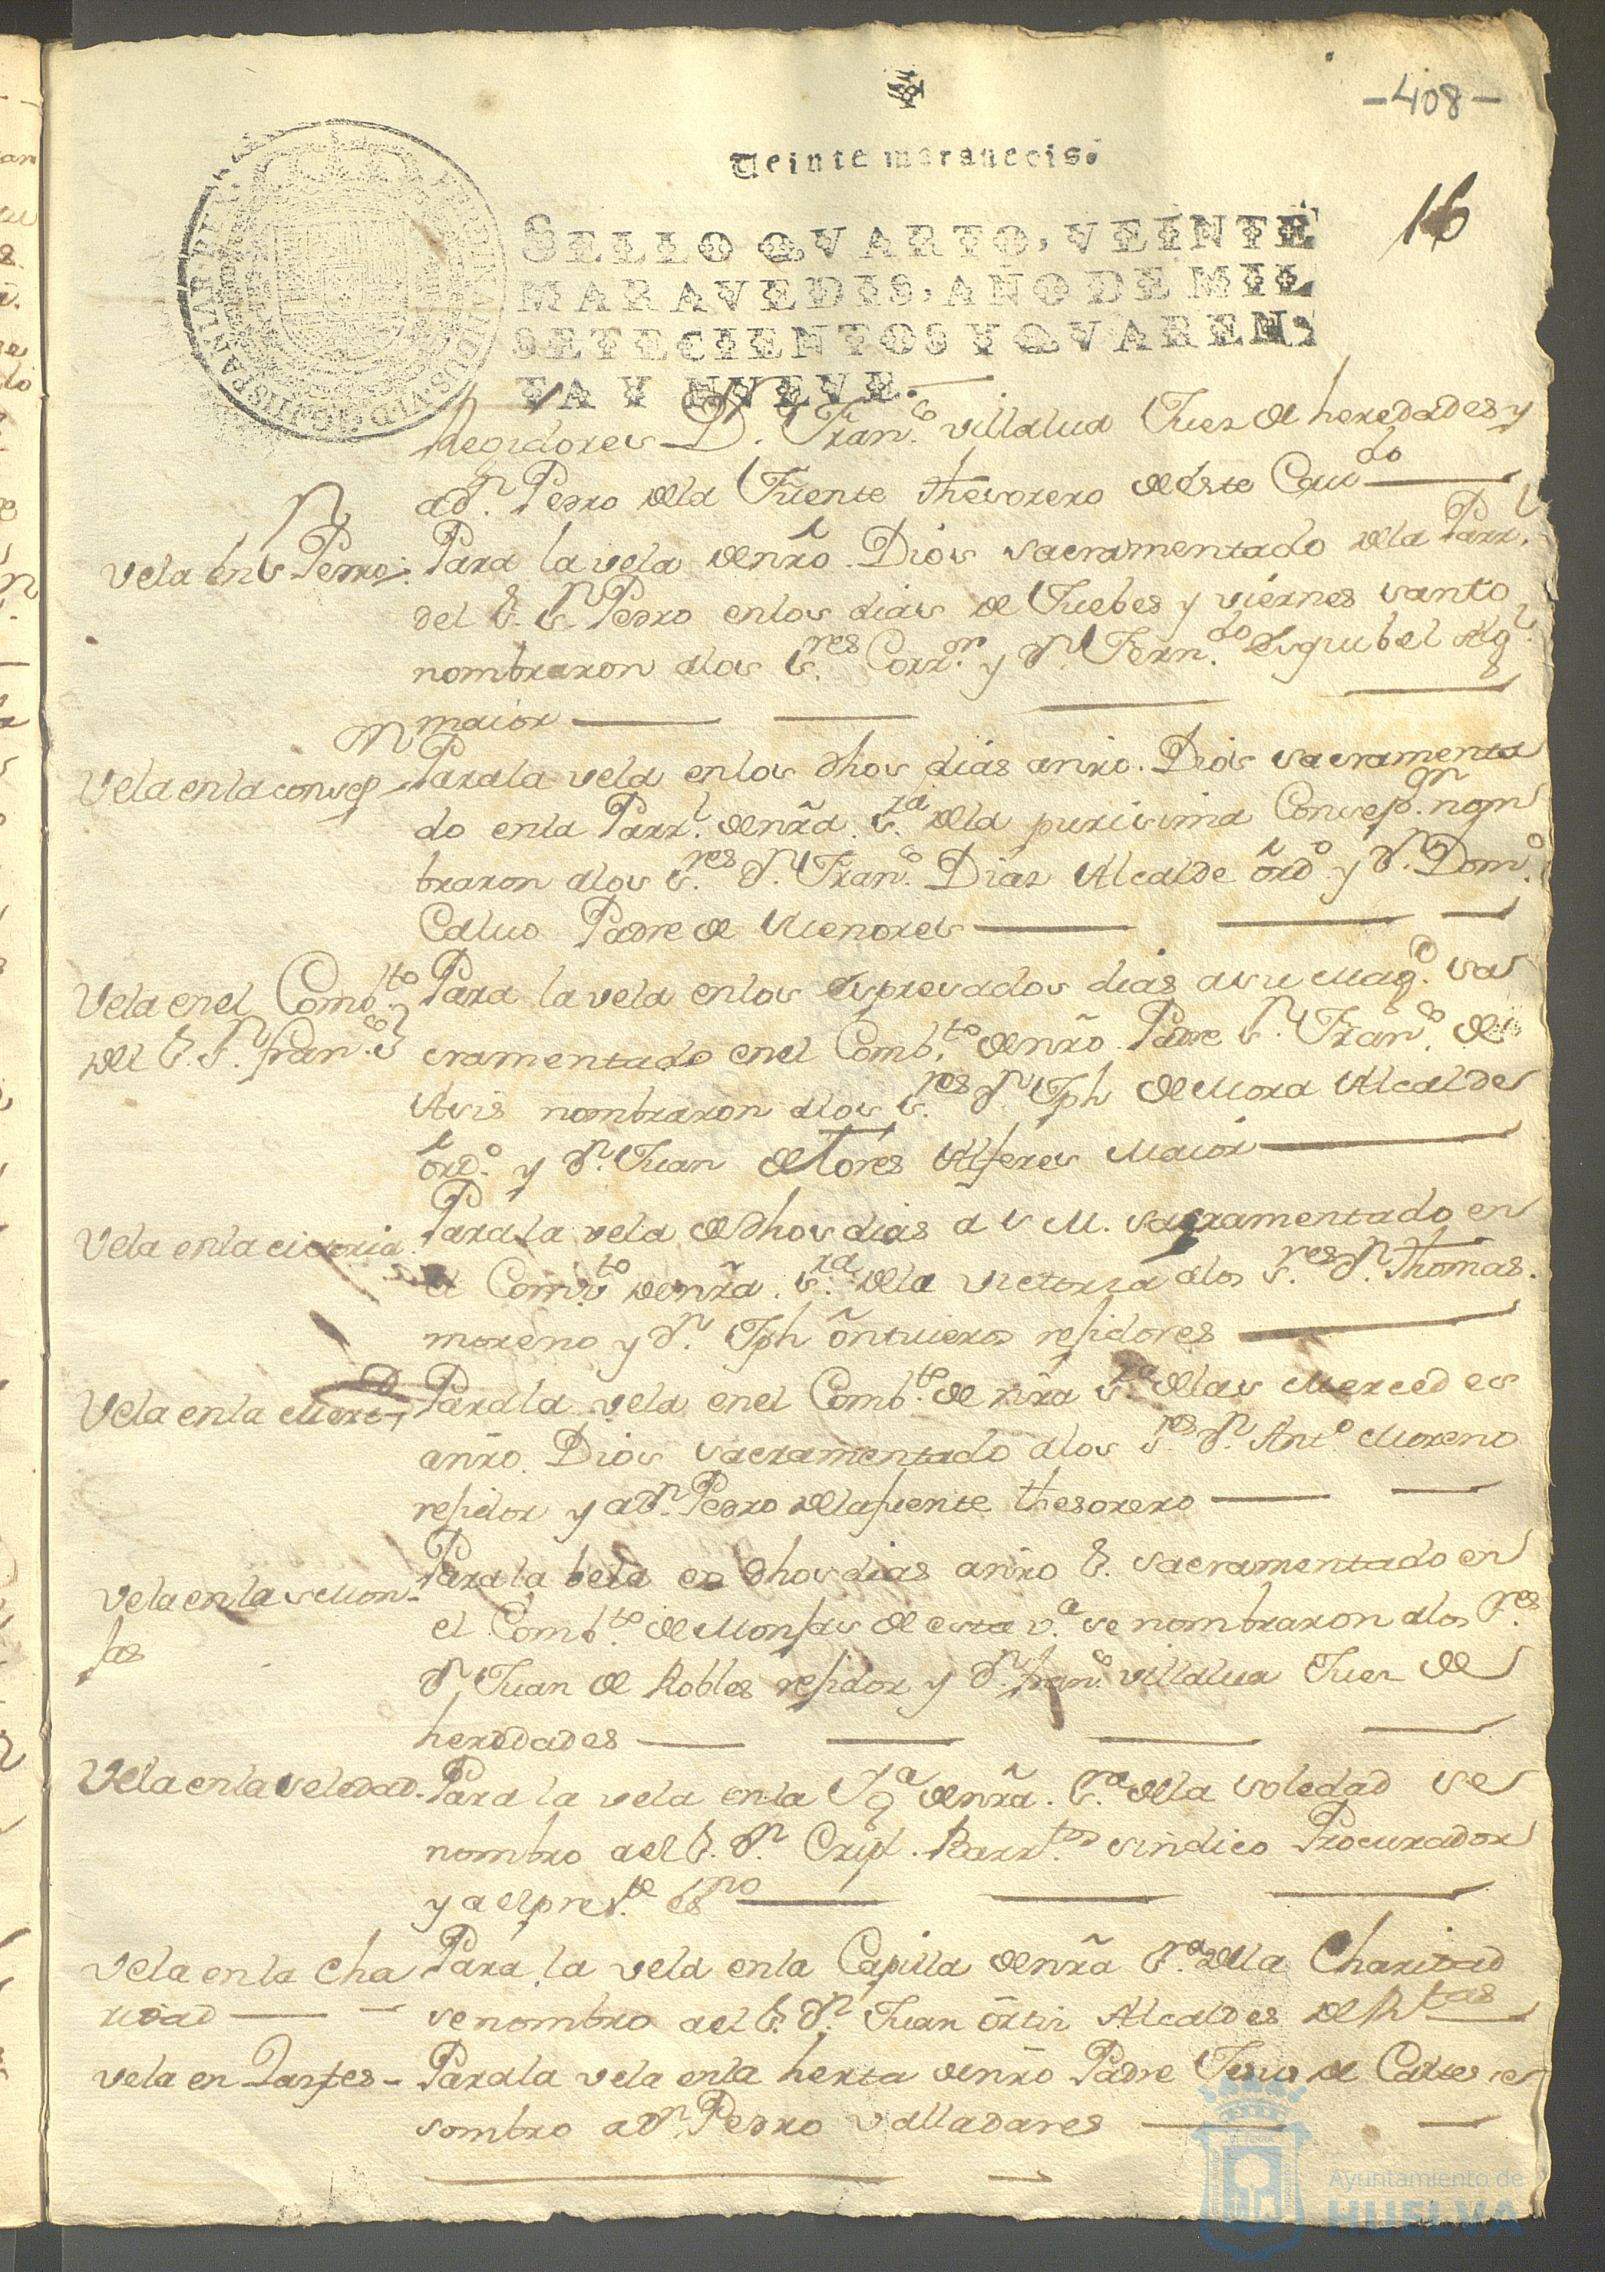 -408-
Veinte marauedis.
16
SELLO QVARTO, VEINTE
MARAVEDIS, AÑO DE MIL
SETECIENTOS Y QVAREN-
TA Y NVEVE.
Regidores D.n Fran.co Villalua Juez de heredades y
a D.n Pedro de la Fuente thesorero de este Cau.do
Vela en S.n Pedro
Para la vela de nro. Dios sacramentado de la Parr.l
del S. S.n Pedro en los dias de Juebes y viernes santo
nombraron a los S.res Corr.or y D.n Fern.do Esquibel Alg.l
maior
Vela en la consep.n
Para la vela en los dhos dias a nro. Dios sacramenta
do en la Parr.l de nra. S.ra de la purisima Consep.on nom
braron a los S.res D.n Fran.co Diaz Alcalde ord.o y D.n Dom.o
Caluo Padre de Menores
Vela en el Comb.to
del S. S.n fran.co
Para la vela en los espresados dias a su Mag.d sa
cramentado en el Comb.to de nro. Padre S.n Fran.co de
Asis nombraron a los S.res D.n Jph de Mora Alcalde
ord.o y D.n Juan de Tores Alferes Maior
Vela en la victoria
Para la vela de dhos dias a S M. sacramentado en
el Comb.to de nra. S.ra de la Victoria a los S.res D.n Thomas
moreno y D.n Jph Ontiueros rejidores
Vela en la Merc.d
Para la vela en el Comb.to de nra S.ra de las Mercedes
a nro. Dios sacramentado a los S.res D.n Ant.o Moreno
rejidor y a D.n Pedro de la fuente thesorero
Vela en las Mon-
jas
Para la bela en dhos dias a nro S. sacramentado en
el Comb.to de Monjas de esta v.a se nombraron a los S.res
D.n Juan de Robles rejidor y D.n fran.co villalua Juez de
heredades
Vela en la soledad.
Para la vela en la Yg.a de nra. S.ra de la Soledad se
nombro a el S. D.n Barr.tos sindico Procurador
y a el pres.te es.no
Vela en la Cha
ridad
Para la vela en la Capilla de nra S.ra de la Charidad
se nombro a el S. D.n Juan Ortiz Alcaldes de R.tas
vela en
Para la vela en la herta de nro Padre Jesus de se
nombro a D.n Pedro valladares
Ayuntamiento de
HUELVA